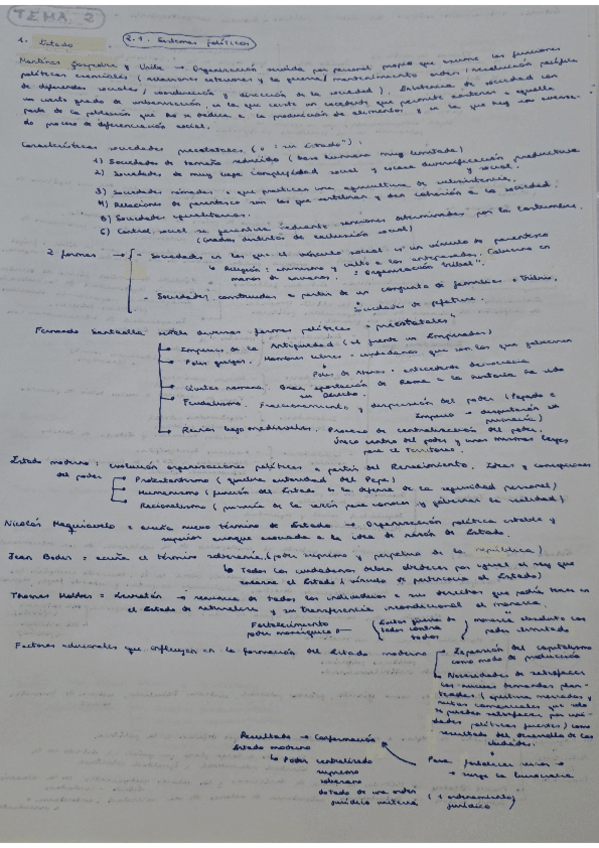 TEMA 2
1. Estado. 2.1. Sistemas políticos
Martínez y → Organización servida por personal propio que asume las funciones
políticas esenciales (relaciones exteriores y la guerra / mantenimiento orden / resolución pacífica
de diferendos sociales / coordinación y dirección de la sociedad). Existencia de sociedad con
un cierto grado de urbanización, en la que existe un excedente que permite mantener a aquella
parte de la población que no se dedica a la producción de alimentos y en la que hay un
proceso de diferenciación social.
Características sociedades preestatales ("sin Estado"):
1) Sociedades de tamaño reducido (base humana muy limitada)
2) Sociedades de muy baja complejidad social y escasa diversificación productiva
y social.
3) Sociedades nómadas o que practican una agricultura de subsistencia.
4) Relaciones de parentesco son las que vertebran y dan cohesión a la sociedad.
5) Sociedades igualitarias.
6) Control social se garantiza mediante sanciones determinadas por la costumbre.
(Grados distintos de exclusión social)
2 formas → - Sociedades en las que el vínculo social es un vínculo de parentesco
↳ Religión: animismo y culto a los antepasados. Gobierno en
manos de ancianos. = "Organización tribal".
- Sociedades construidas a partir de un conjunto de familias = Tribus.
Sociedades de jefatura.
Fernando señala diversas formas políticas "preestatales"
Imperios de la Antigüedad (al frente un Emperador)
Polis griegas. Hombres libres = ciudadanos que son los que gobiernan
Polis de Atenas = antecedente democracia
Civitas romana. Gran aportación de Roma a la historia ha sido
su Derecho.
Feudalismo. Fraccionamiento y dispersión del poder (Papado e
Imperio → disputarán su
primacía)
Reinos bajomedievales. Proceso de centralización del poder.
Único centro del poder y unas mismas leyes
para el territorio.
Estado moderno: evolución organizaciones políticas a partir del Renacimiento. Ideas y concepciones
del poder
Protestantismo (quiebra autoridad del Papa)
Humanismo (función del Estado es la defensa de la seguridad personal)
Racionalismo (primacía de la razón para conocer y gobernar la realidad)
Nicolás Maquiavelo = acuña nuevo término de Estado → Organización política estable y
superior aunque asociada a la idea de razón de Estado.
Jean Bodin = acuña el término soberanía (poder supremo y perpetuo de la república)
↳ Todos los ciudadanos deben obedecer por igual al rey que
encarna el Estado (vínculo de al Estado)
Thomas Hobbes = Leviatán → renuncia de todos los individuos a sus derechos que podía tener en
el Estado de naturaleza y su transferencia incondicional al monarca.
Fortalecimiento
poder monárquico
(Evitar guerra de
todos contra
todos)
monarca absoluto con
poder ilimitado
Factores adicionales que influyen en la formación del Estado moderno
Expansión del capitalismo
como modo de producción
Necesidades de satisfacer
las nuevas demandas plan-
teadas (apertura mercados y
rutas comerciales que solo
se pueden satisfacer por uni-
dades políticas fuertes) como
resultado del desarrollo de las
ciudades.
Resultado → Conformación
Estado moderno
↳ Poder centralizado
supremo
soberano
dotado de un orden
jurídico unitario (1 ordenamiento
jurídico)
Para fortalecer reino →
→ surge la burocracia